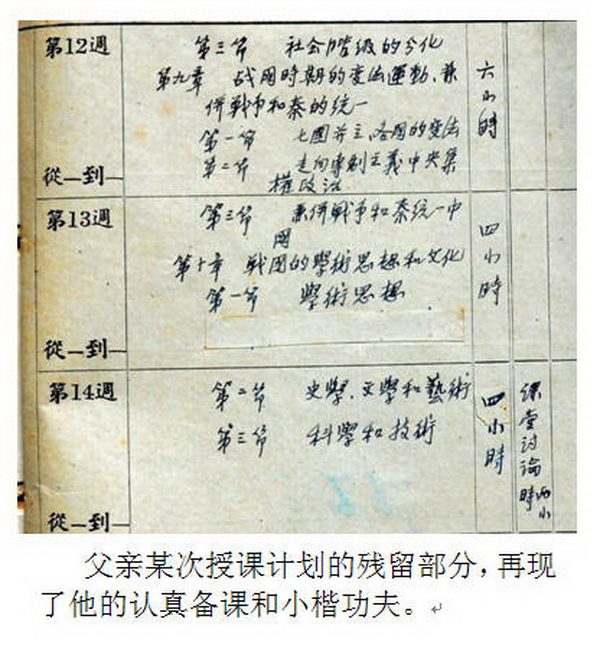 第12週
第三节 社会階級的分化
第九章 战国時期的变法運動、兼
併戰爭和秦的统一
第一节 七國並立、各国的变法
第二节 走向專制主義中央集
權政治
六小時
從—到—
第13週
第三节 兼併戰爭和秦统一中
國
第十章 戰国的學術思想和文化
第一节 學術思想
四小時
從—到—
第14週
第二节 史學、文學和藝術
第三节 科學和技術
四小時
课堂讨論
兩小
時
從—到—
父亲某次授课计划的残留部分，再现
了他的认真备课和小楷功夫。